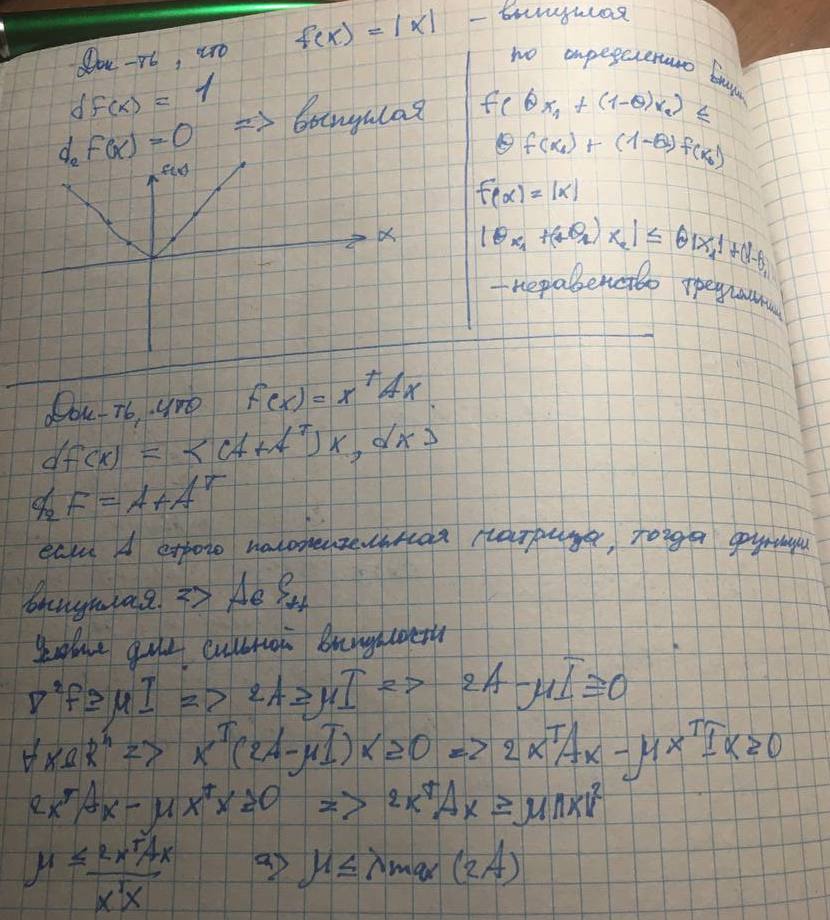 Док-ть, что f(x) = |x| – выпуклая
df(x) = 1
d₂f(x) = 0 => выпуклая
f(x)
x
по определению
f(θx₁ + (1-θ)x₂) ≤
θf(x₁) + (1-θ)f(x₂)
f(x) = |x|
|θx₁ + (1-θ)x₂| ≤ θ|x₁| + (1-θ)
– неравенство треугольника
Док-ть, что f(x) = xᵀAx
df(x) = <(A+Aᵀ)x, dx>
d₂f = A+Aᵀ
если A строго положительная матрица, тогда функция
выпуклая. => A ∈ S₊₊
Условия для сильной выпуклости
∇²f ≥ μI => 2A ≥ μI => 2A - μI ≥ 0
∀x∈Rⁿ => xᵀ(2A-μI)x ≥ 0 => 2xᵀAx - μxᵀIx ≥ 0
2xᵀAx - μxᵀx ≥ 0 => 2xᵀAx ≥ μ‖x‖²
μ ≤ 2xᵀAx / xᵀx => μ ≤ λmax (2A)